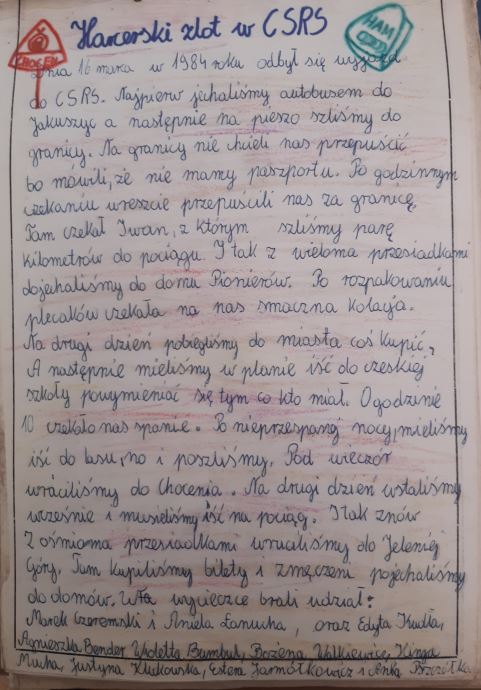 Harcerski zlot w CSRS
CHOCEŃ
HAM
dnia 16 marca w 1984 roku odbył się wyjazd
do CSRS. Najpierw jechaliśmy autobusem do
Jakuszyc a następnie na pieszo szliśmy do
granicy. Na granicy nie chcieli nas przepuścić
bo mówili, że nie mamy paszportu. Po godzinnym
czekaniu wreszcie przepuścili nas za granicę.
Tam czekał Iwan, z którym szliśmy parę
kilometrów do pociągu. I tak z wieloma przesiadkami
dojechaliśmy do domu Pionierów. Po rozpakowaniu
plecaków czekała na nas smaczna kolacja.
Na drugi dzień pobiegliśmy do miasta coś kupić,
A następnie mieliśmy w planie iść do czeskiej
szkoły powymieniać się tym co kto miał. O godzinie
10 czekało nas spanie. Po nieprzespanej nocy, mieliśmy
iść do lasu, no i poszliśmy. Pod wieczór
wróciliśmy do Chocenia. Na drugi dzień wstaliśmy
wcześnie i musieliśmy iść na pociąg. I tak znów
z ośmioma przesiadkami wróciliśmy do Jeleniej
Góry. Tam kupiliśmy bilety i zmęczeni pojechaliśmy
do domów. W wycieczce brali udział:
Marek Czeremski i Aniela Łanucha, oraz Edyta Kudła,
Agnieszka Bender, Wioletta Bumbul, Bożena Walkiewicz, Kinga
Mucha, Justyna Klukowska, Estera Jarmółkowicz i Anka Brzezitka